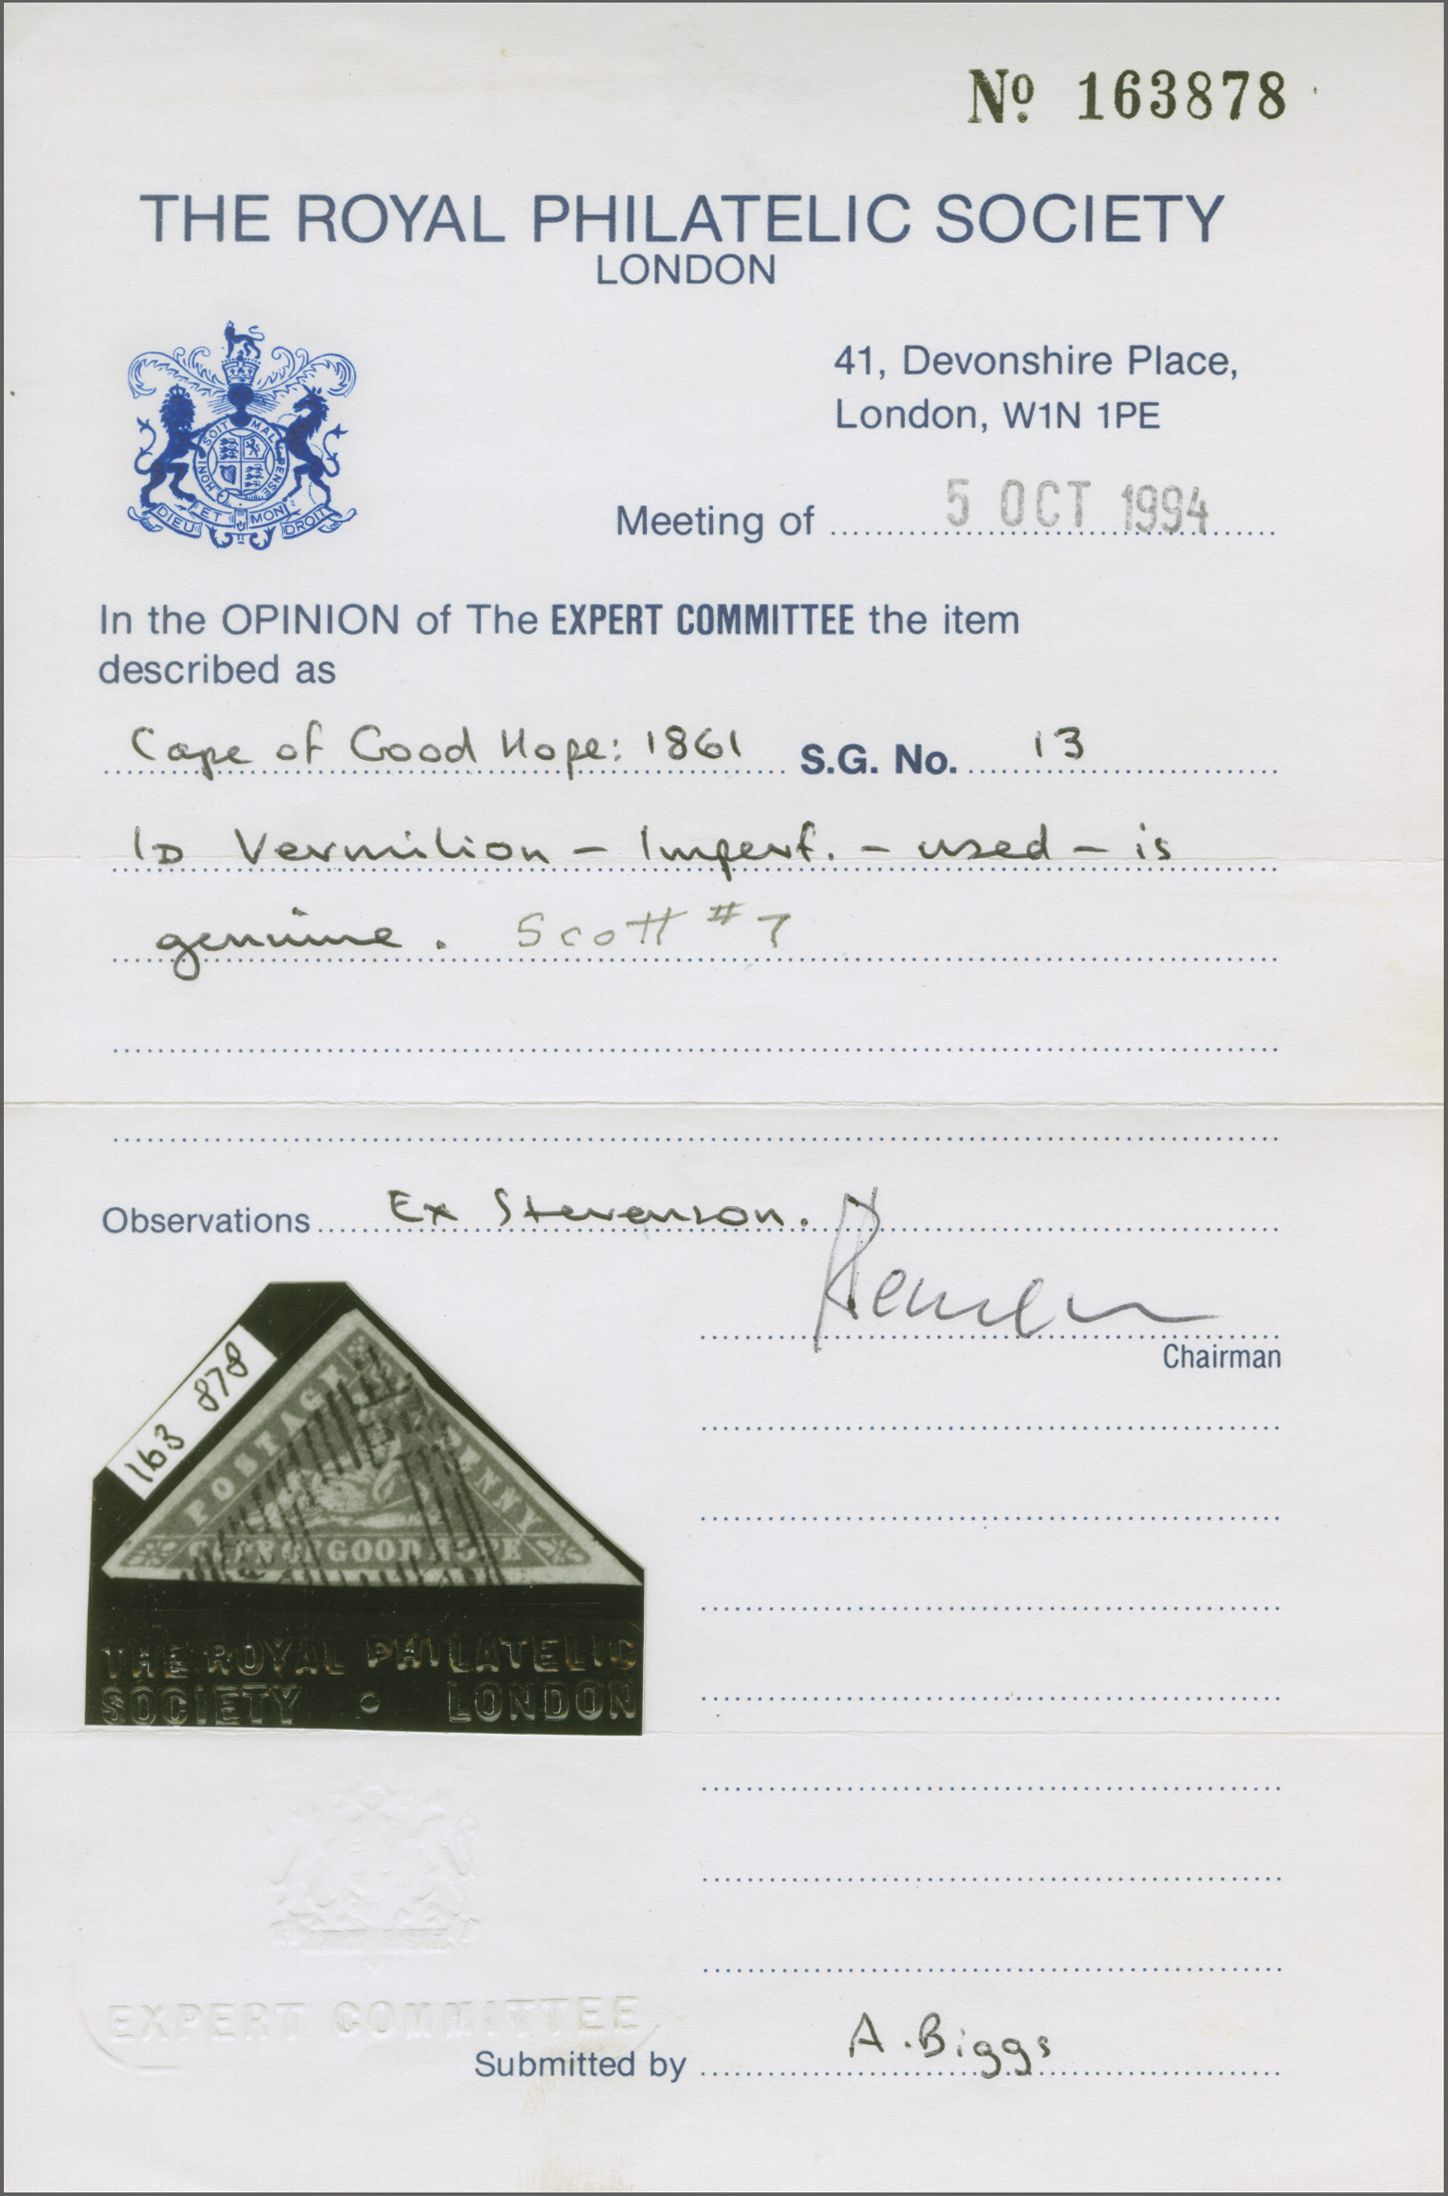 No. 163878
THE ROYAL PHILATELIC SOCIETY
LONDON
41, Devonshire Place,
London, W1N 1PE
HONI SOIT MAL PENSE
DIEU ET MON DROIT
Meeting of 5 OCT 1994
In the OPINION of The EXPERT COMMITTEE the item
described as
Cape of Good Hope: 1861 S.G. No. 13
1D Vermilion – Imperf. – used – is
genuine. Scott #7
Observations Ex Stevenson.
Chairman
163 878
POSTAGE
PENNY
GOOD HOPE
THE ROYAL PHILATELIC
SOCIETY LONDON
EXPERT COMMITTEE
Submitted by A. Biggs